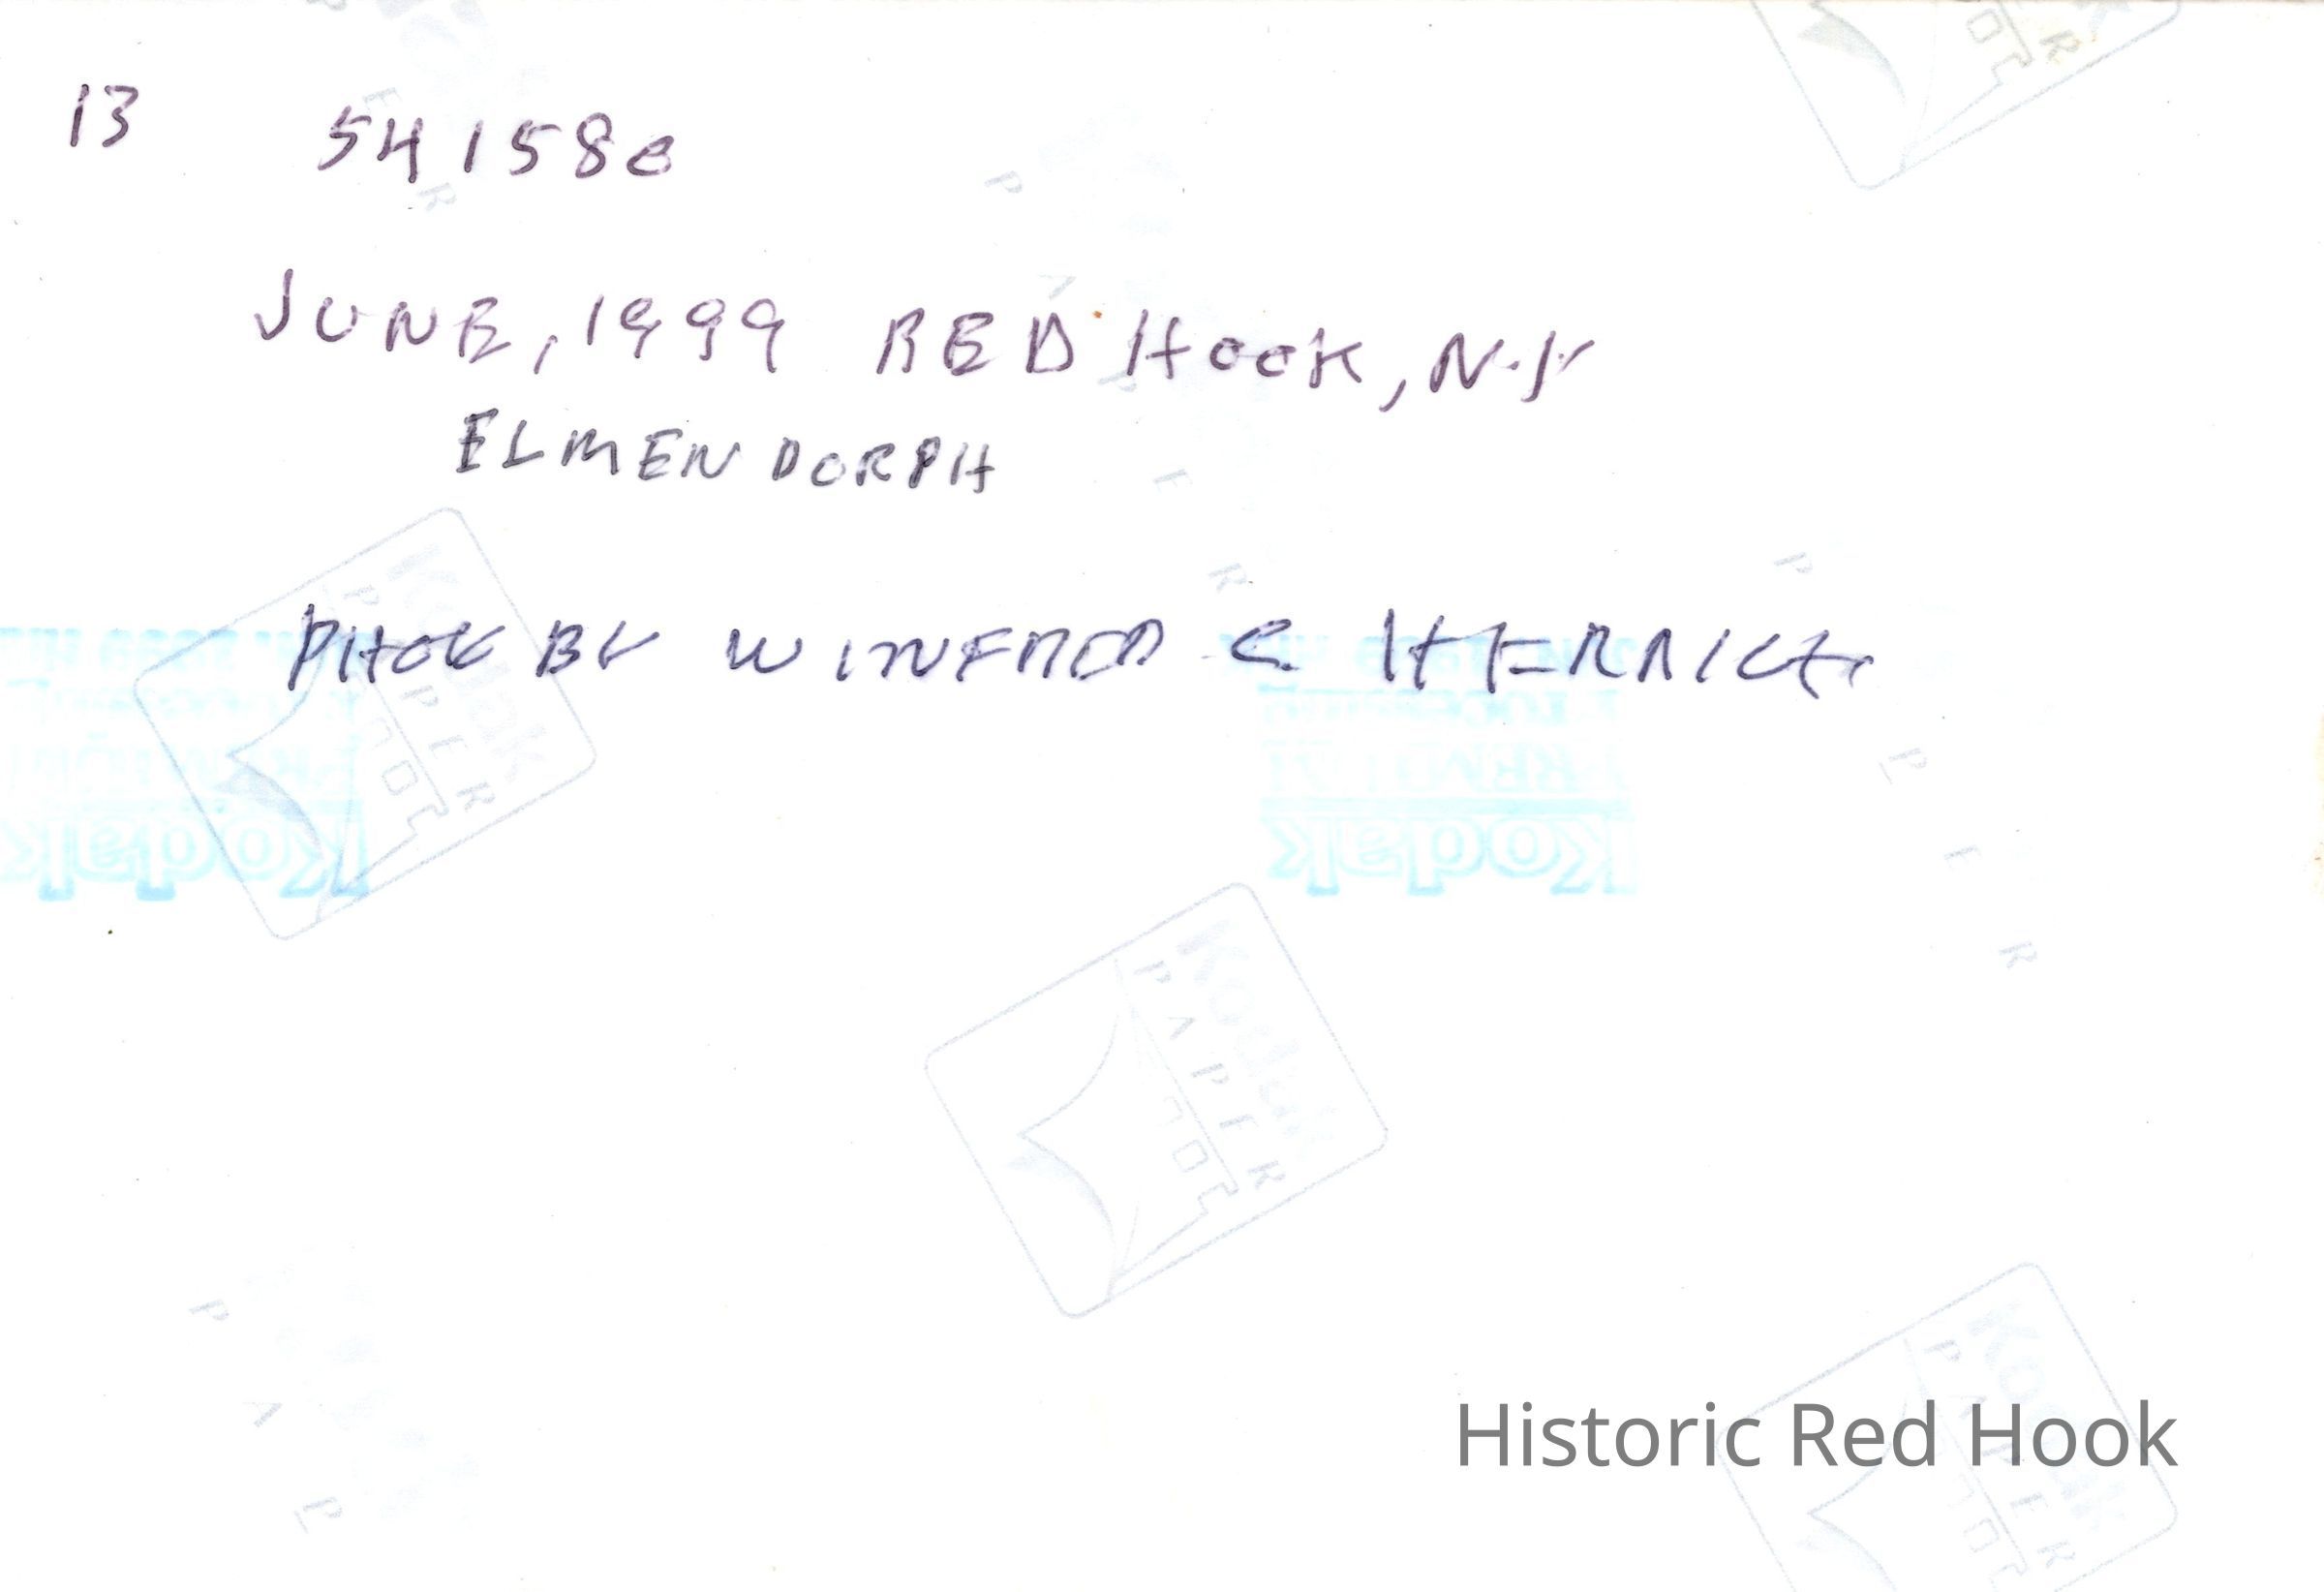 13 541580
JUNE, 1999 RED HOOK, N.Y
ELMENDORPH
BY WINFRED C HERRICK
Kodak
PAPER
Kodak
Kodak
Kodak
PAPER
Kodak
PAPER
Historic Red Hook